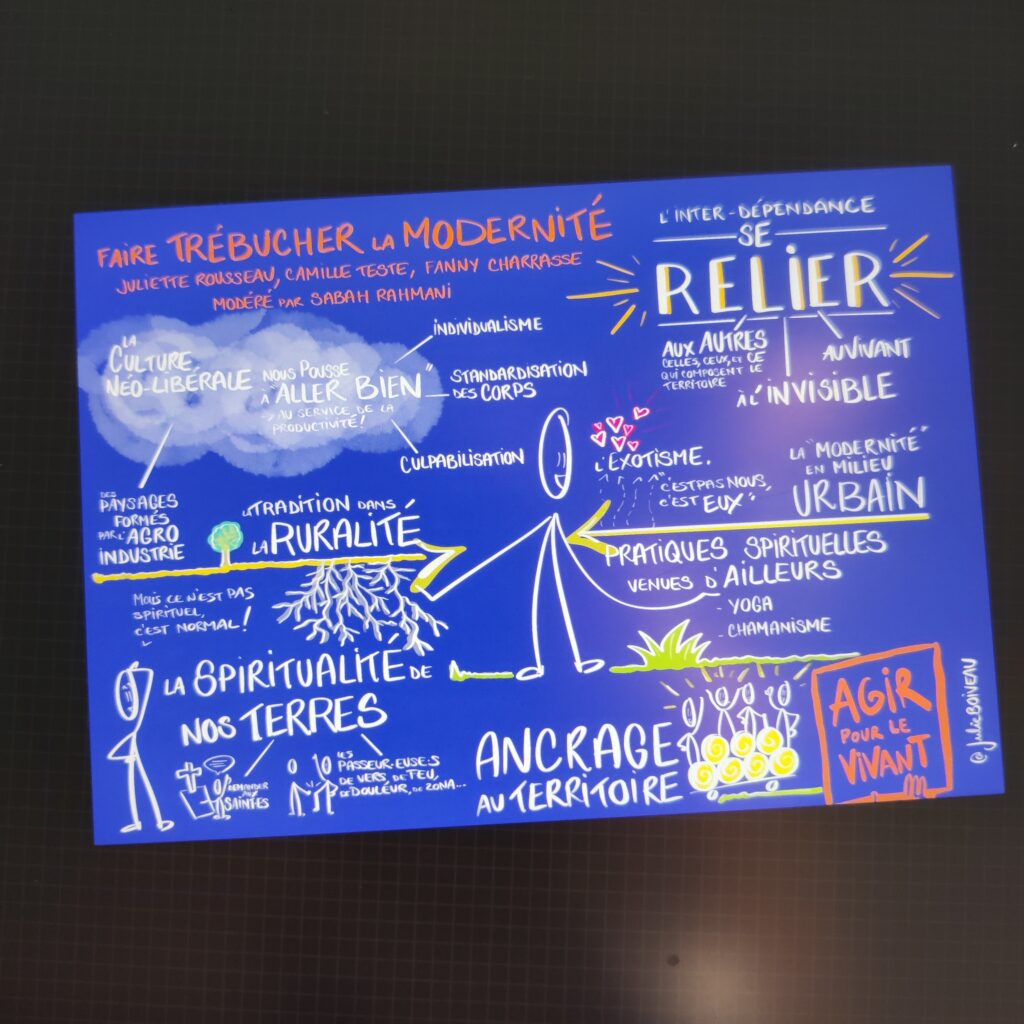 FAIRE TRÉBUCHER LA MODERNITÉ
JULIETTE ROUSSEAU, CAMILLE TESTE, FANNY CHARRASSE
MODÉRÉ PAR SABAH RAHMANI
L'INTER-DÉPENDANCE
SE
RELIER
AUX AUTRES
CELLES, CEUX, ET CE
QUI COMPOSENT LE
TERRITOIRE
À L'INVISIBLE
AU VIVANT
LA
CULTURE
NÉO-LIBÉRALE
NOUS POUSSE
À "ALLER BIEN"
AU SERVICE DE LA
PRODUCTIVITÉ!
INDIVIDUALISME
STANDARDISATION
DES CORPS
CULPABILISATION
DES
PAYSAGES
FORMÉS
PAR L'AGRO
INDUSTRIE
LA TRADITION DANS
LA RURALITÉ
L'EXOTISME.
"C'EST PAS NOUS,
C'EST EUX"
LA "MODERNITÉ"
EN MILIEU
URBAIN
PRATIQUES SPIRITUELLES
VENUES D'AILLEURS
- YOGA
- CHAMANISME
MAIS CE N'EST PAS
SPIRITUEL,
C'EST NORMAL!
LA SPIRITUALITÉ DE
NOS TERRES
DEMANDER
AUX
SAINT·ES
LES
PASSEUR·EUSE·S
DE VERS, DE FEU,
DE DOULEUR, DE ZONA...
ANCRAGE
AU TERRITOIRE
AGIR
POUR LE
VIVANT
@JulieBOIVEAU